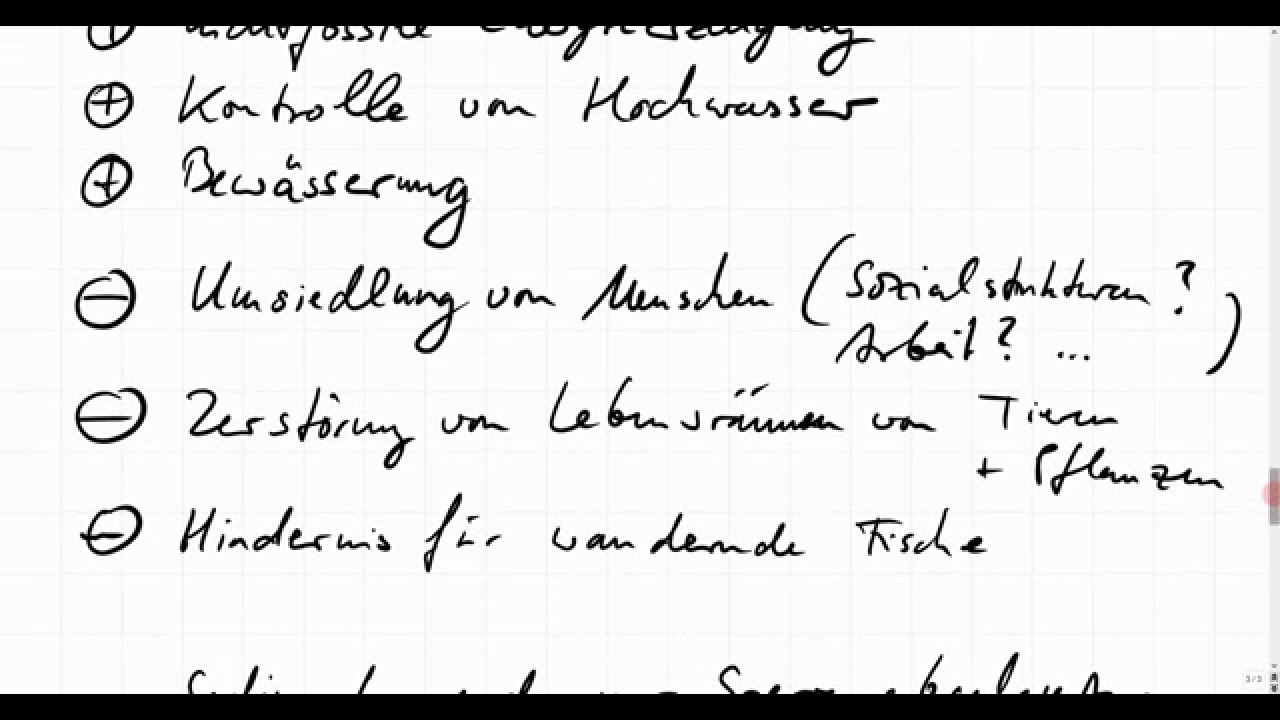 ⊕ nichtfossile Energieerzeugung
⊕ Kontrolle von Hochwasser
⊕ Bewässerung
⊖ Umsiedlung von Menschen (Sozialstrukturen?
Arbeit? ...)
⊖ Zerstörung von Lebensräumen von Tieren
+ Pflanzen
⊖ Hindernis für wandernde Fische
3/3